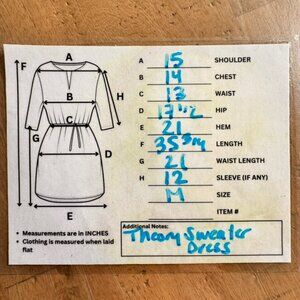 A 15 SHOULDER
B 14 CHEST
C 13 WAIST
D 17 1/2 HIP
E 21 HEM
F 35 3/4 LENGTH
G 21 WAIST LENGTH
H 12 SLEEVE (IF ANY)
M SIZE
ITEM #
A
B
C
D
E
F
G
H
• Measurements are in INCHES
• Clothing is measured when laid
flat
Additional Notes:
Theory Sweater
Dress